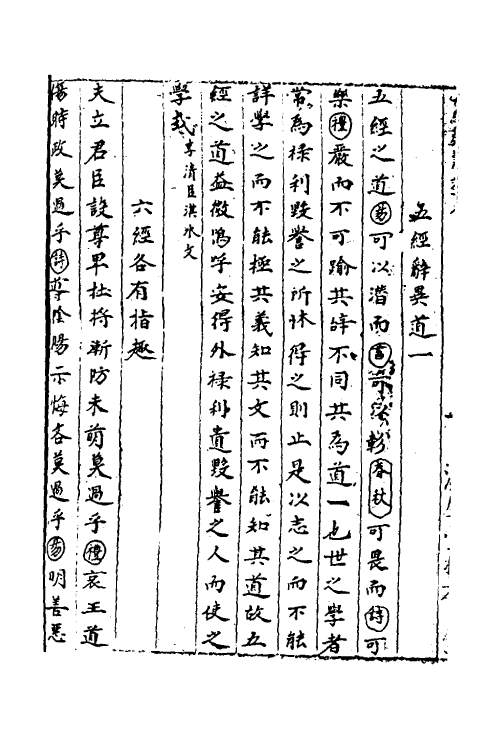 五經辭異道一
五經之道易可以潛而書可
春秋可畏而詩可
樂禮嚴而不可踰其辭不同其為道一也世之學者
常為祿利毀譽之所怵得之則止是以志之而不能
詳學之而不能極其義知其文而不能知其道故五
經之道益微嗚呼安得外祿利遺毀譽之人而使之
學哉李清臣淇水文
六經各有指趣
夫立君臣設尊卑杜將漸防未萌莫過乎禮哀王道
傷時政莫過乎詩導陰陽示悔吝莫過乎易明善惡